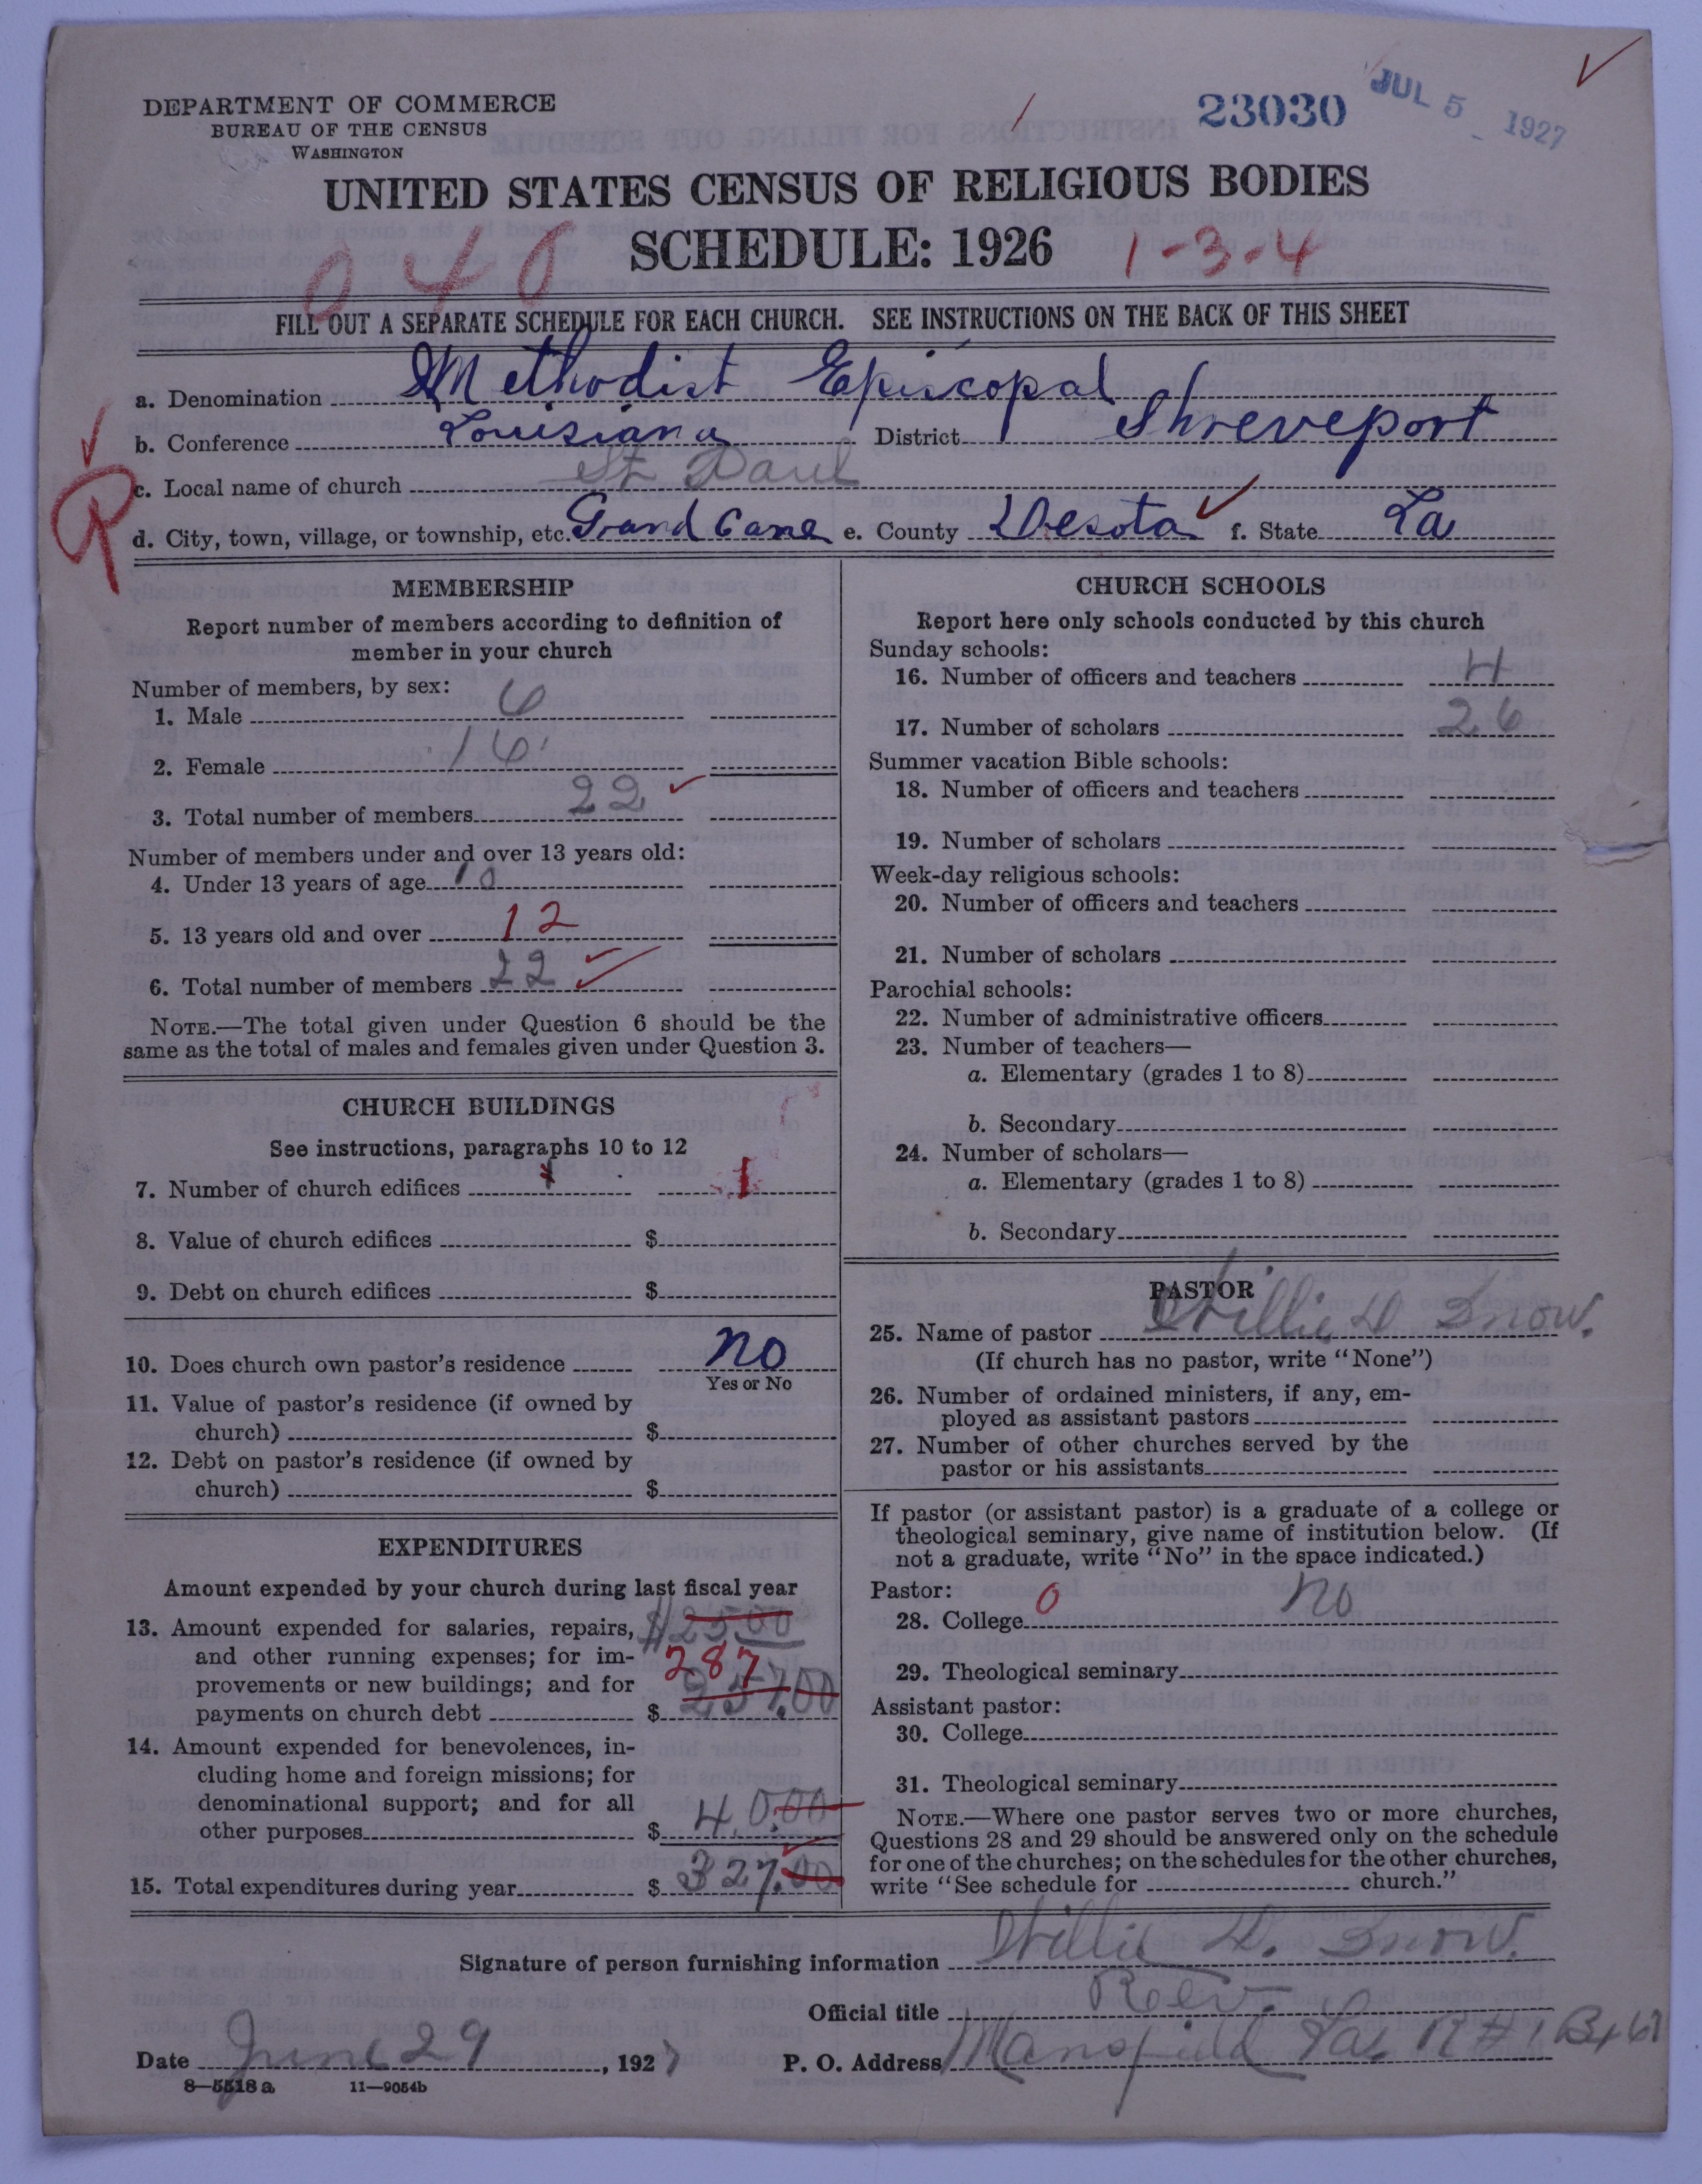 DEPARTMENT OF COMMERCE
BUREAU OF THE CENSUS
WASHINGTON
23030
JUL 5 1927
UNITED STATES CENSUS OF RELIGIOUS BODIES
SCHEDULE: 1926
040
1-3-4
FILL OUT A SEPARATE SCHEDULE FOR EACH CHURCH. SEE INSTRUCTIONS ON THE BACK OF THIS SHEET
a. Denomination Methodist Episcopal
b. Conference Louisiana District Shreveport
R
c. Local name of church St Paul
d. City, town, village, or township, etc. Grand Cane e. County Desota f. State La
MEMBERSHIP
Report number of members according to definition of
member in your church
Number of members, by sex:
1. Male 6
2. Female 16
3. Total number of members 22
Number of members under and over 13 years old:
4. Under 13 years of age 10
5. 13 years old and over 12
6. Total number of members 22
NOTE.—The total given under Question 6 should be the
same as the total of males and females given under Question 3.
CHURCH BUILDINGS
See instructions, paragraphs 10 to 12
7. Number of church edifices 1 1
8. Value of church edifices $
9. Debt on church edifices $
10. Does church own pastor's residence no
Yes or No
11. Value of pastor's residence (if owned by
church) $
12. Debt on pastor's residence (if owned by
church) $
EXPENDITURES
Amount expended by your church during last fiscal year
13. Amount expended for salaries, repairs, $2500
and other running expenses; for im- 287
provements or new buildings; and for
payments on church debt $ 257.00
14. Amount expended for benevolences, in-
cluding home and foreign missions; for
denominational support; and for all
other purposes $ 40.00
15. Total expenditures during year $ 327.00
CHURCH SCHOOLS
Report here only schools conducted by this church
Sunday schools:
16. Number of officers and teachers 4
17. Number of scholars 26
Summer vacation Bible schools:
18. Number of officers and teachers
19. Number of scholars
Week-day religious schools:
20. Number of officers and teachers
21. Number of scholars
Parochial schools:
22. Number of administrative officers
23. Number of teachers—
a. Elementary (grades 1 to 8)
b. Secondary
24. Number of scholars—
a. Elementary (grades 1 to 8)
b. Secondary
PASTOR
25. Name of pastor Willie D Snow.
(If church has no pastor, write "None")
26. Number of ordained ministers, if any, em-
ployed as assistant pastors
27. Number of other churches served by the
pastor or his assistants
If pastor (or assistant pastor) is a graduate of a college or
theological seminary, give name of institution below. (If
not a graduate, write "No" in the space indicated.)
Pastor:
28. College 0 no
29. Theological seminary
Assistant pastor:
30. College
31. Theological seminary
NOTE.—Where one pastor serves two or more churches,
Questions 28 and 29 should be answered only on the schedule
for one of the churches; on the schedules for the other churches,
write "See schedule for church."
Signature of person furnishing information Willie D. Snow.
Official title Rev.
Date June 29, 1927 P. O. Address Mansfield La. R#1 Bx 67
8—5518 a 11—9054b